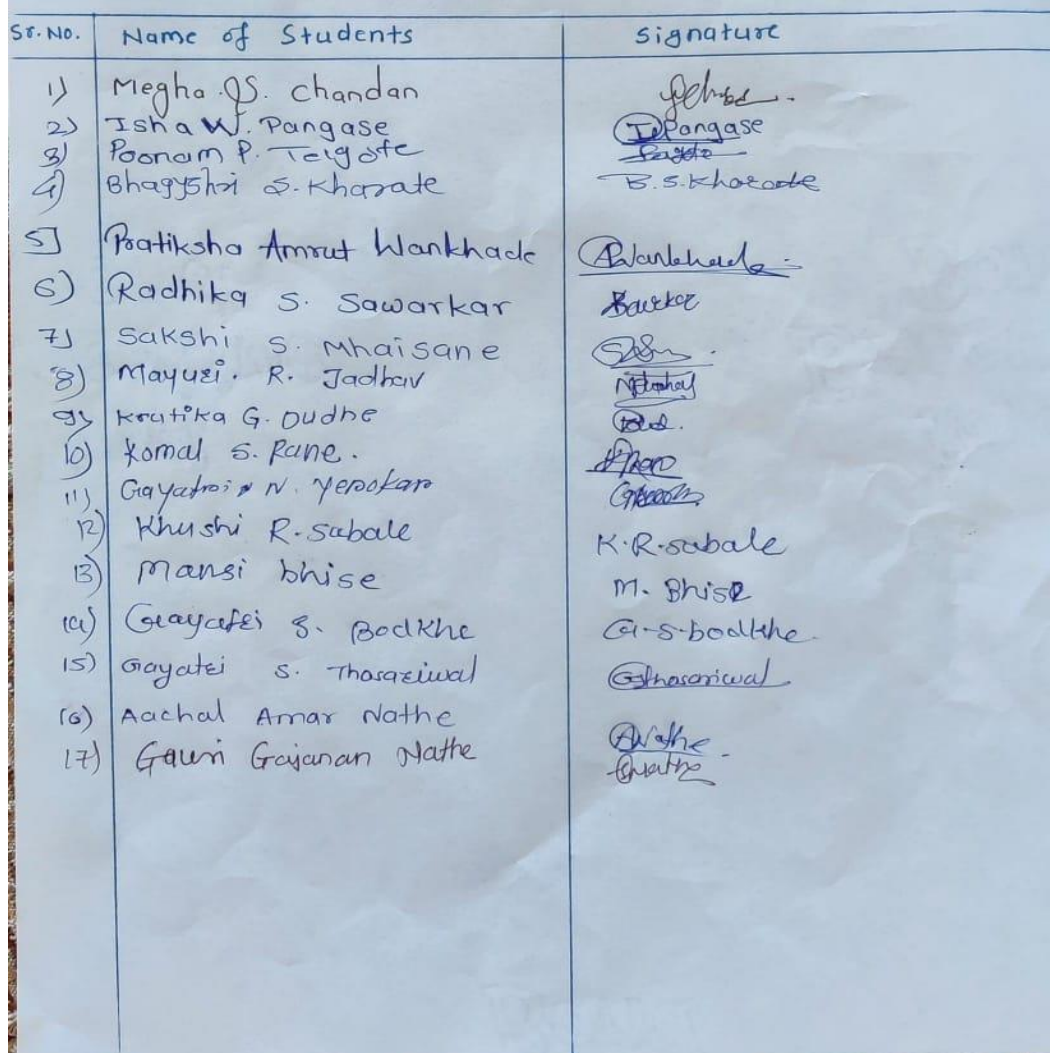 Sr. No. Name of Students Signature
1) Megha S. Chandan
2) Isha W. Pangase IPangase
3) Poonam P. Taigote
4) Bhagyshri S. Kharate B.S.Kharate
5] Pratiksha Amrut Wankhade AWankhade
6) Radhika S. Sawarkar
7) Sakshi S. Mhaisane
8) Mayuri. R. Jadhav
9) Krutika G. Oudhe
10) Komal S. Rane.
11) Gayatri N. Yerokar
12) Khushi R. Sabale K.R.sabale
13) Mansi bhise M. Bhise
14) Gayatri S. Bodkhe G.S.bodkhe
15) Gayatri S. Tharariwal
16) Aachal Amar Nathe ANathe
17) Gauri Gajanan Nathe GNathe